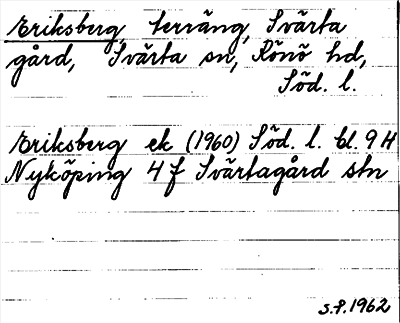 Eriksberg terräng, Svärta
gård, Svärta sn, Rönö hd,
Söd. l.
Eriksberg ek (1960) Söd. l. bl. 9 H
Nyköping 4 f Svärtagård stn
S.P. 1962